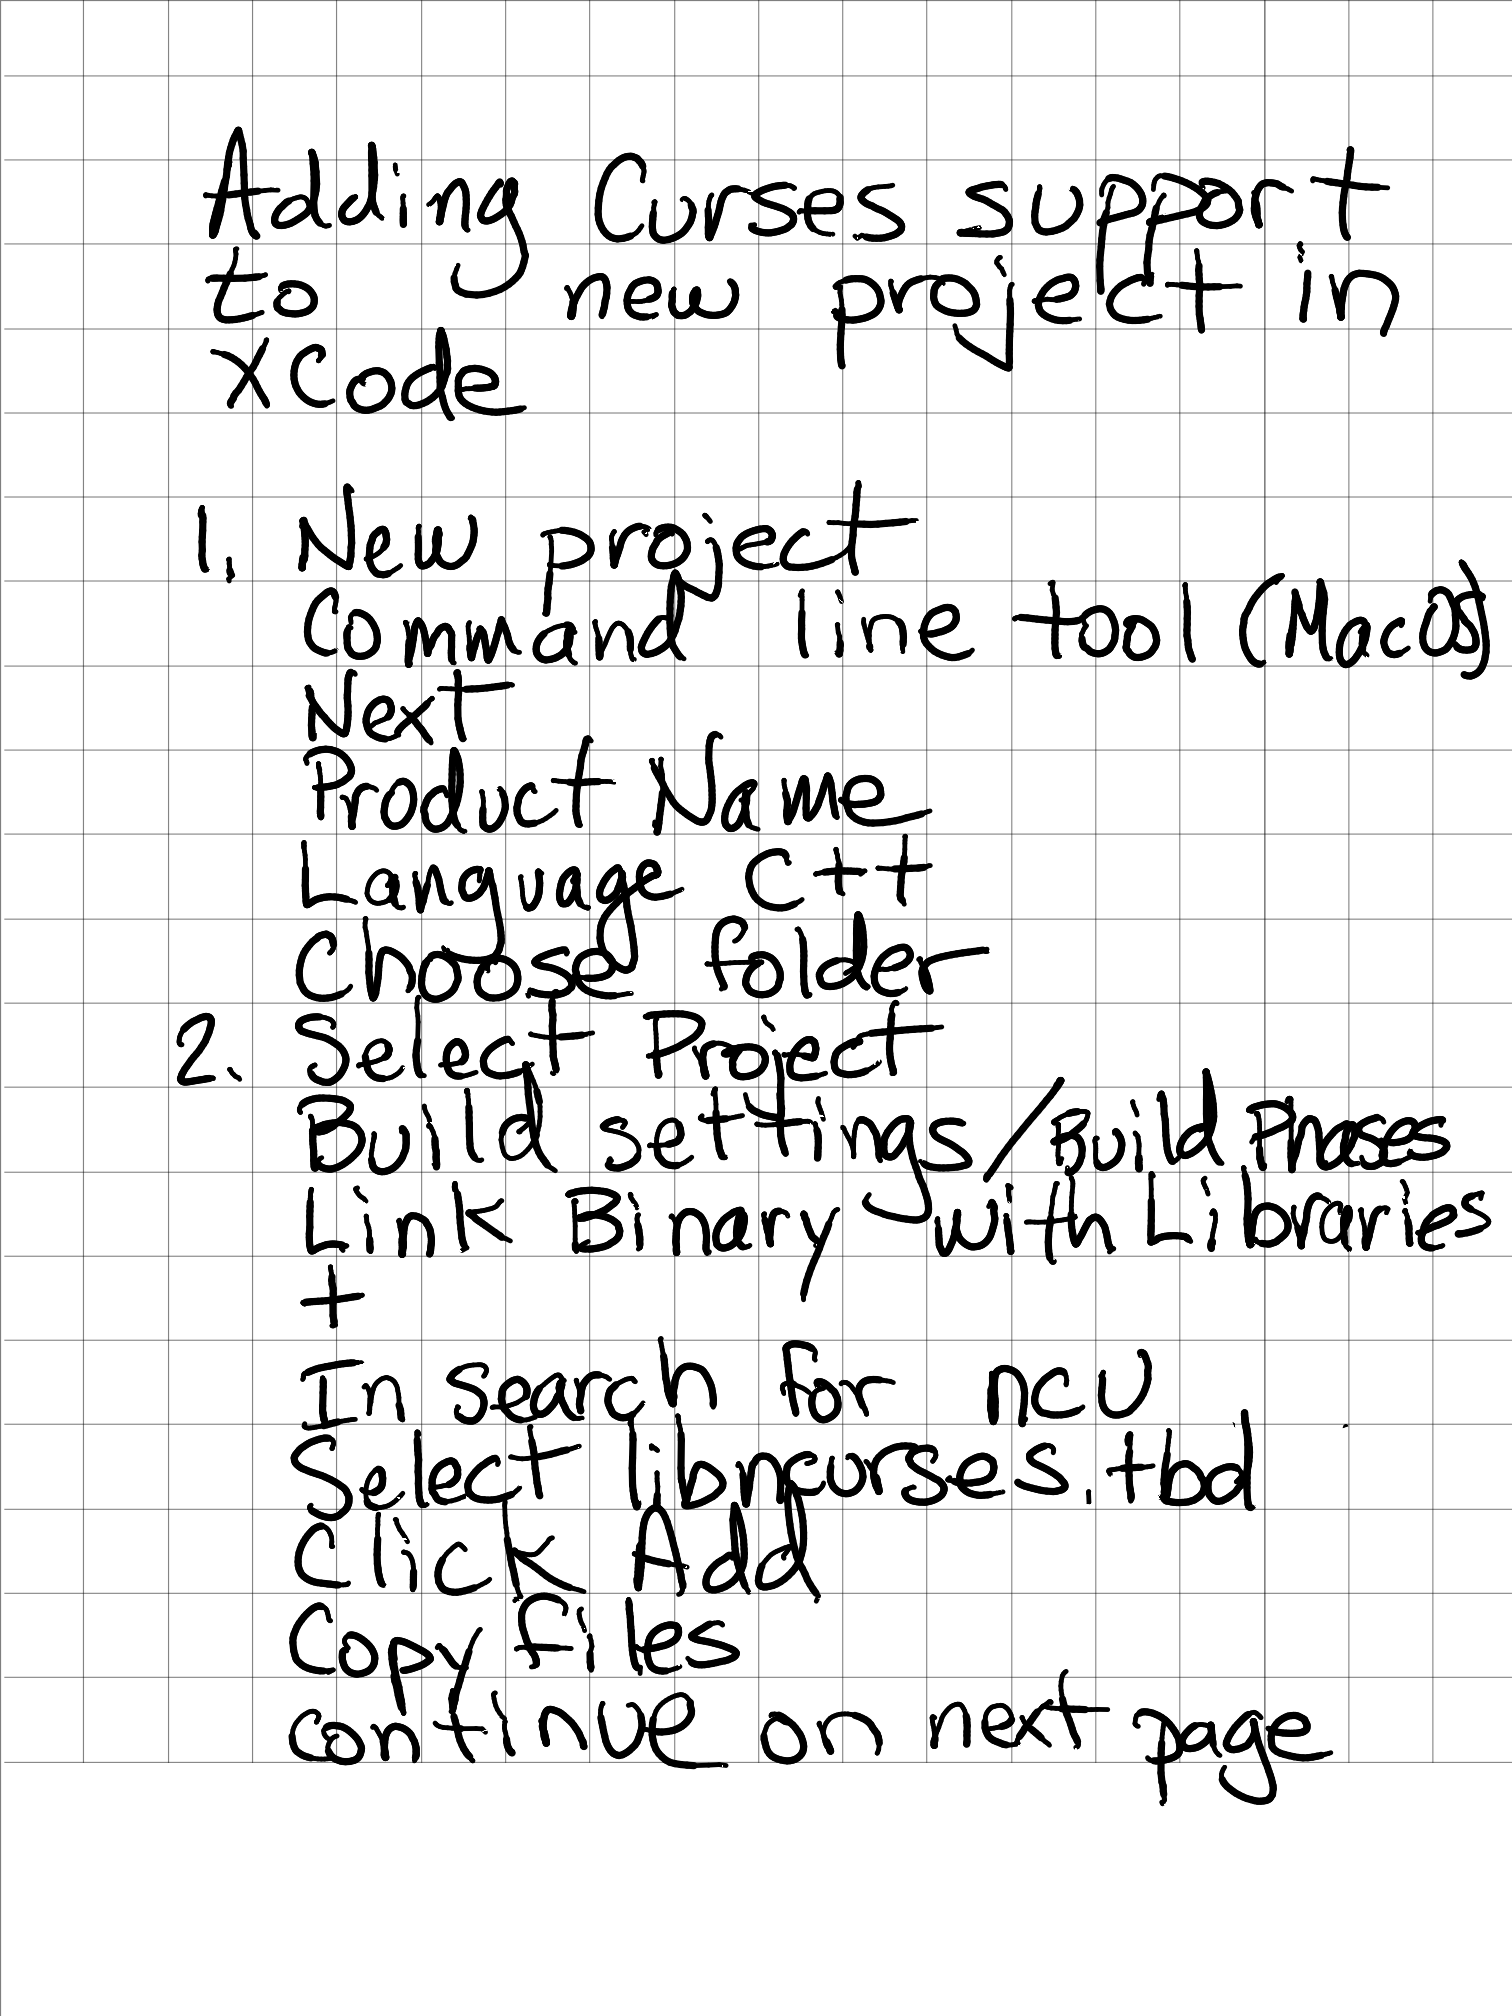 Adding Curses support
to new project in
XCode
1. New project
Command line tool (MacOS)
Next
Product Name
Language C++
Choose folder
2. Select Project
Build settings/Build Phases
Link Binary with Libraries
+
In search for ncu
Select libncurses.tbd
Click Add
Copy files
continue on next page